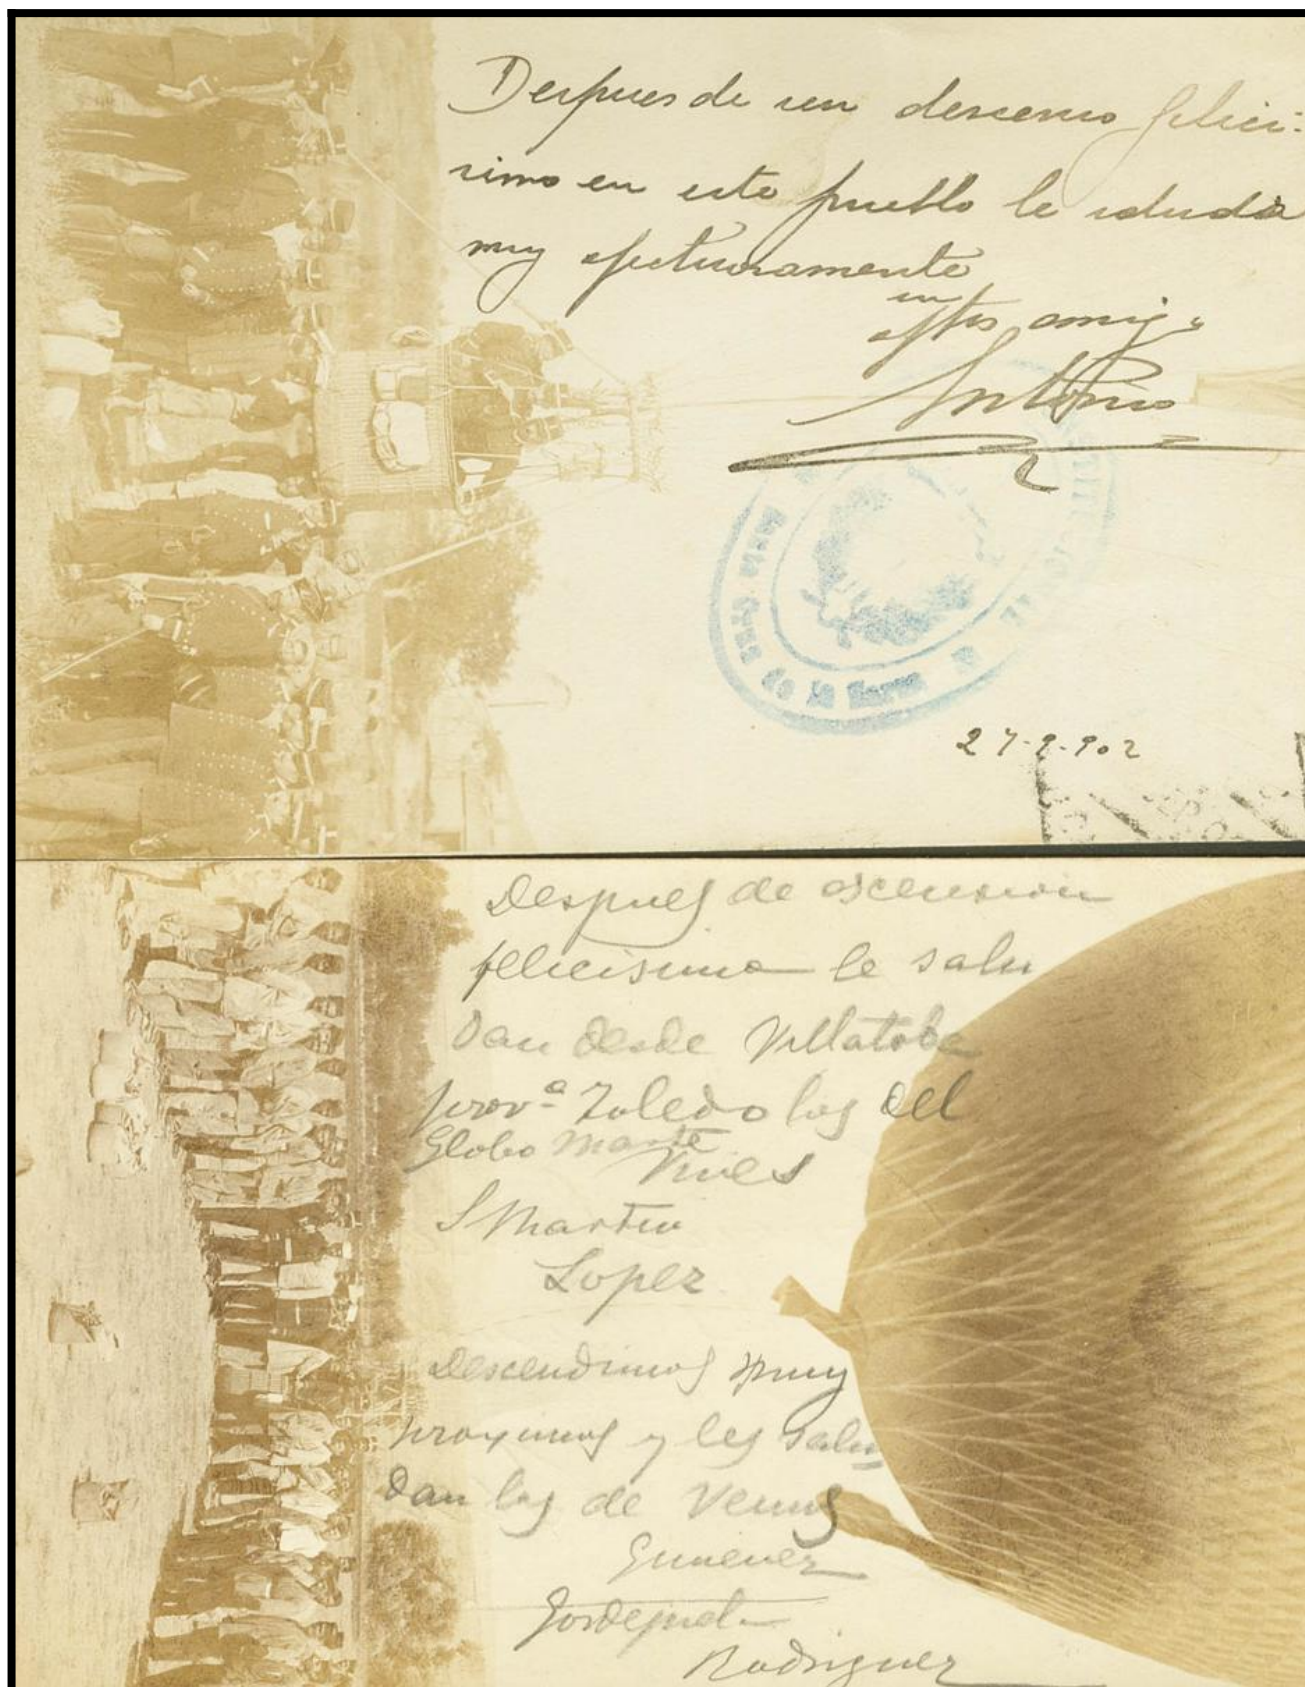 Despues de un descenso felici-
simo en este pueblo le saluda
muy afectuosamente
su
affmo amigo
Antonio
Santa Cruz de la Zarza
27-9-902
Despues de ascension
felicisima le salu
dan desde Villatoba
provª Toledo los del
Globo Marte
Vives
S Martin
Lopez
Descendimos muy
proximos y les salu
dan los de Venus
Gimenez
Gordejuela
Rodriguez